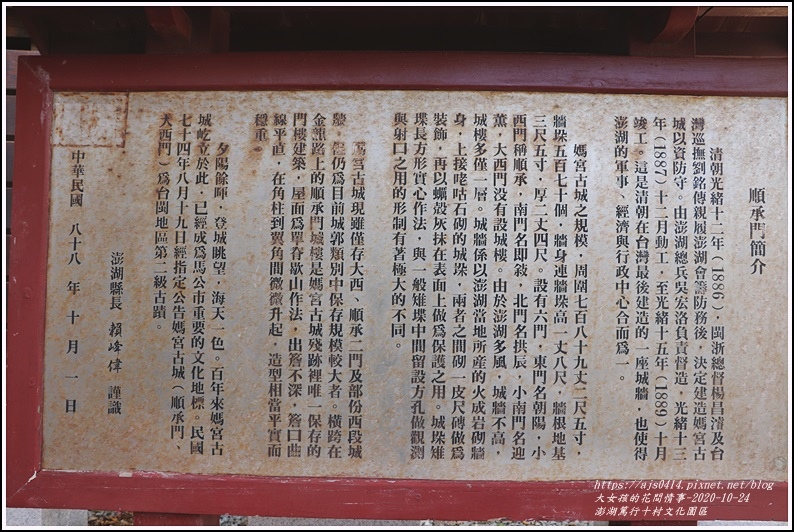 順承門簡介
清朝光緒十二年（1886），閩浙總督楊昌濬及台
灣巡撫劉銘傳親履澎湖會籌防務後，決定建造媽宮古
城以資防守。由澎湖總兵吳宏洛負責督造，光緒十三
年（1887）十二月動工，至光緒十五年（1889）十月
竣工。這是清朝在台灣最後建造的一座城牆，也使得
澎湖的軍事、經濟與行政中心合而為一。
媽宮古城之規模，周圍七百八十九丈二尺五寸，
牆垛五百七十個，牆身連牆垛高一丈八尺，牆根地基
三尺五寸，厚二丈四尺。設有六門，東門名朝陽，小
西門稱順承，南門名即敘，北門名拱辰，小南門名迎
薰，大西門沒有設城樓。由於澎湖多風，城牆不高，
城樓多僅一層。城牆係以澎湖當地所產的火成岩砌牆
身，上接咾咕石砌的城垛，兩者之間砌一皮尺磚做為
裝飾，再以蠣殼灰抹在表面上做為保護之用。城垛雉
堞長方形實心作法，與一般雉堞中間留設方孔做觀測
與射口之用的形制有著極大的不同。
宮古城現雖僅存大西、順承二門及部份西段城
仍為目前城郭類別中保存規模較大者。橫跨在
金龍路上的順承門城樓是媽宮古城殘跡裡唯一保存的
門樓建築，屋面為單脊歇山作法，出簷不深，簷口曲
線平直，在角柱到翼角間微微升起，造型相當平實而
穩重。
夕陽餘暉，登城眺望，海天一色。百年來媽宮古
城屹立於此，已經成為馬公市重要的文化地標。民國
七十四年八月十九日經指定公告媽宮古城（順承門、
大西門）為台閩地區第二級古蹟。
澎湖縣長 賴峰偉 謹識
中華民國 八十八 年 十 月 一 日
https://ajs0414.pixnet.net/blog
大女孩的花間情事-2020-10-24
澎湖篤行十村文化園區